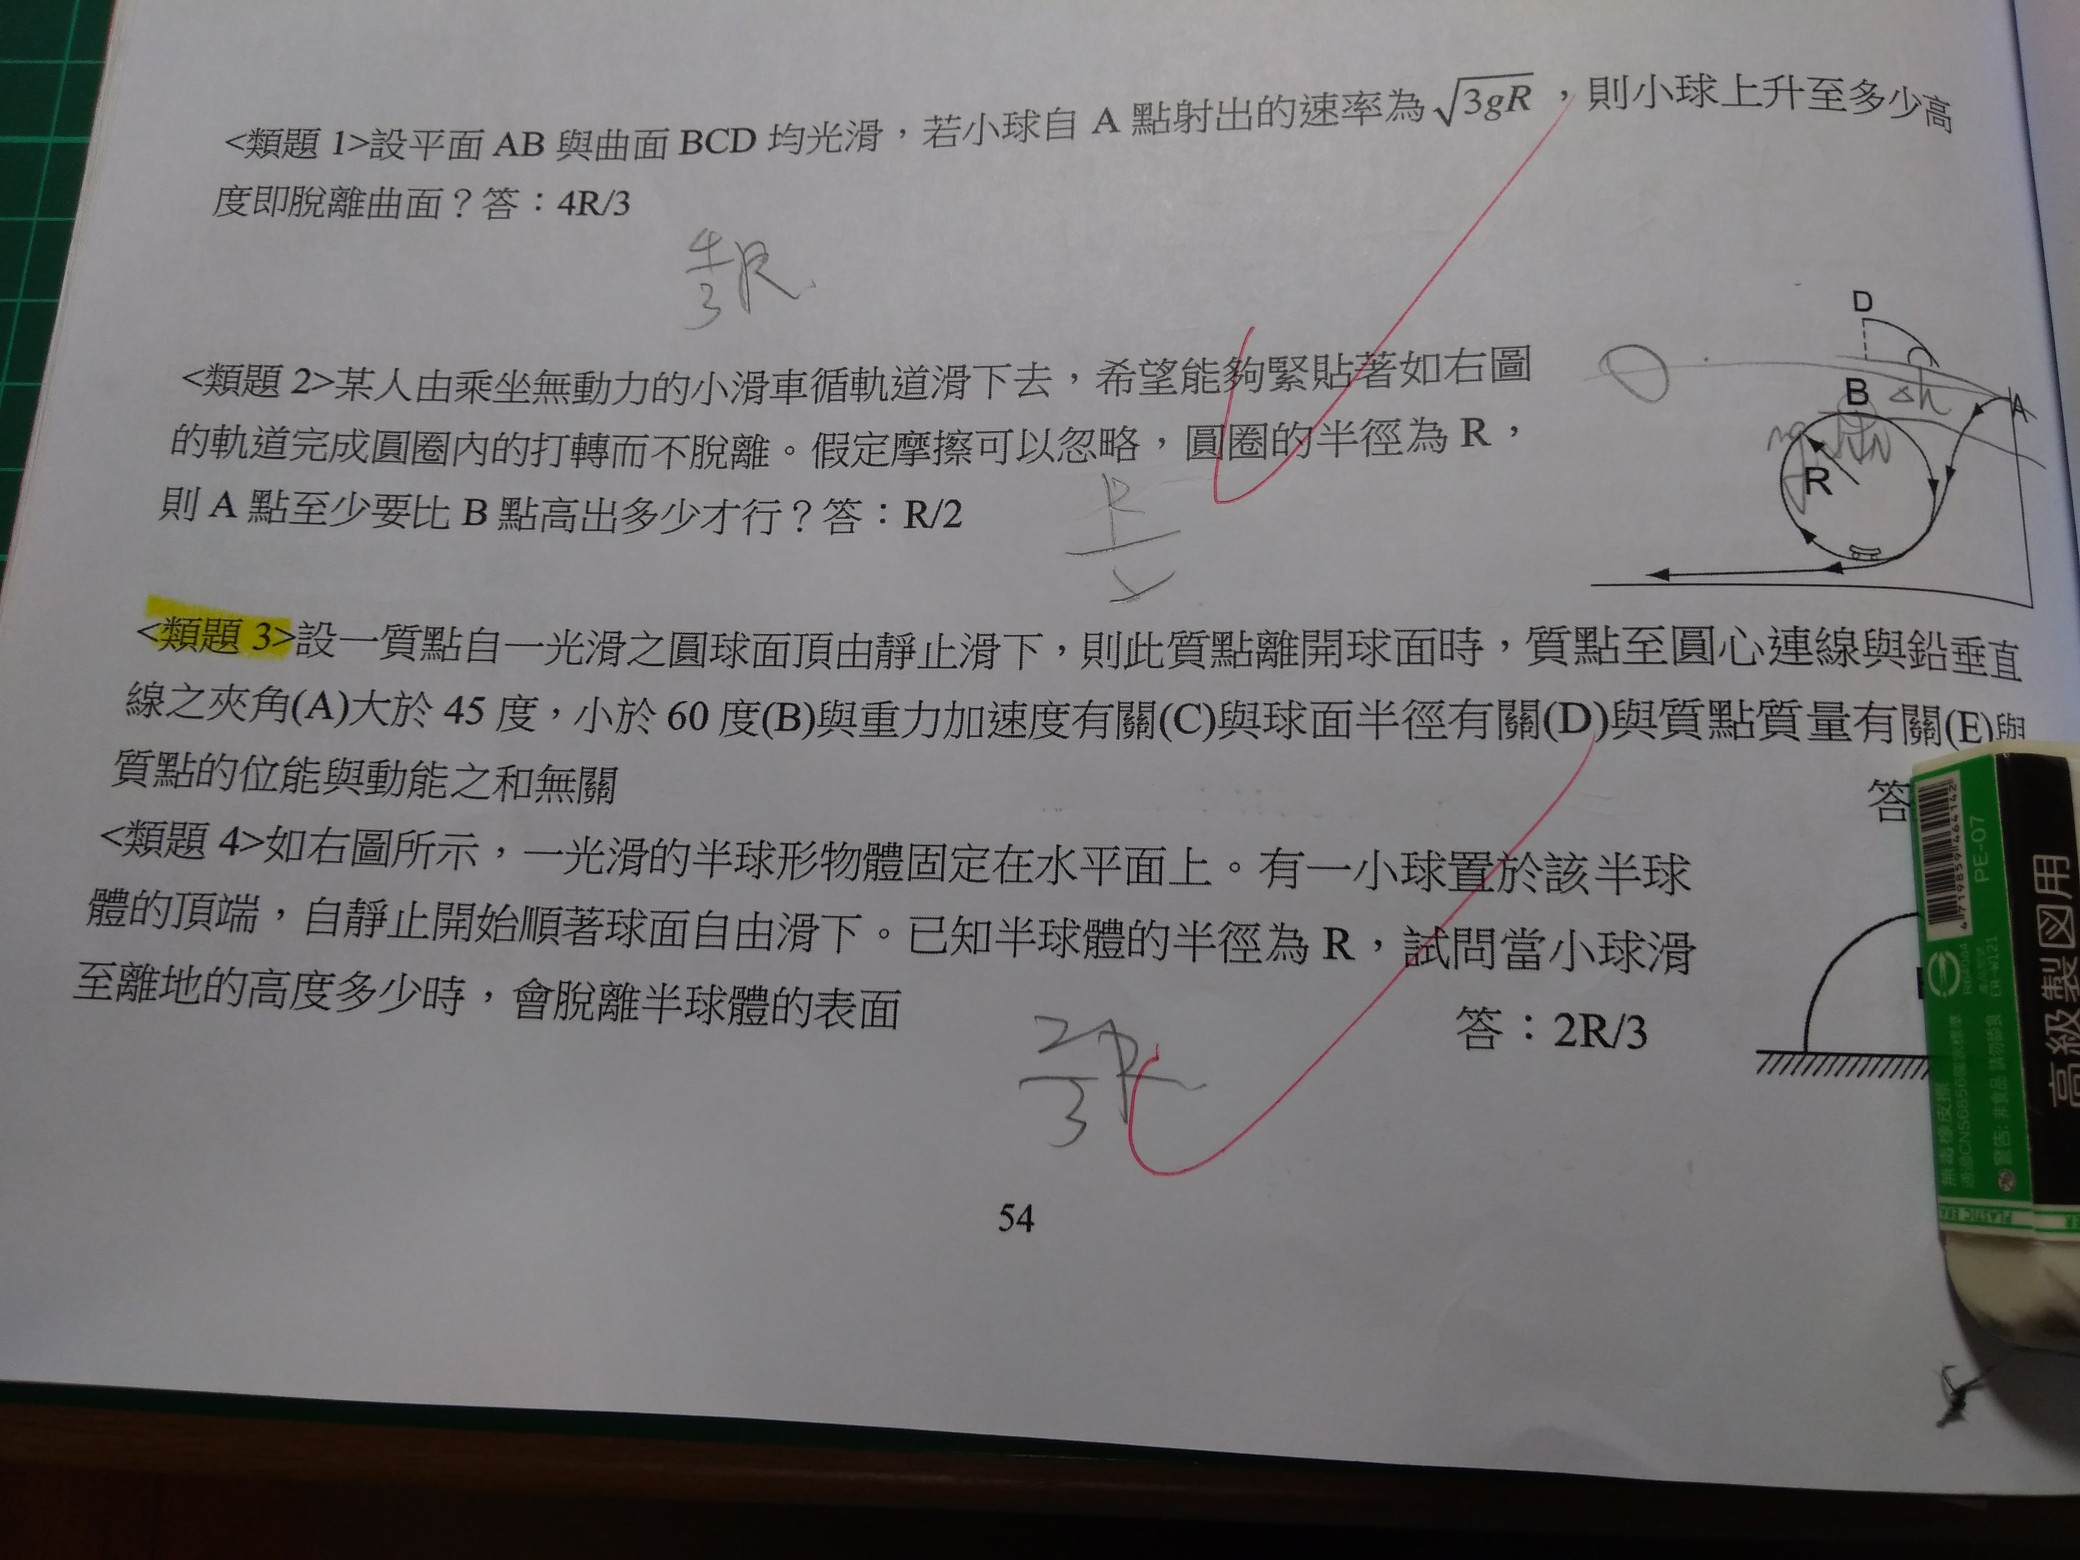 <類題 1>設平面 AB 與曲面 BCD 均光滑，若小球自 A 點射出的速率為 √3gR ，則小球上升至多少高
度即脫離曲面？答：4R/3
4/3 R
D
<類題 2>某人由乘坐無動力的小滑車循軌道滑下去，希望能夠緊貼著如右圖
B Δh A
的軌道完成圓圈內的打轉而不脫離。假定摩擦可以忽略，圓圈的半徑為 R，
R
則 A 點至少要比 B 點高出多少才行？答：R/2
<類題 3>設一質點自一光滑之圓球面頂由靜止滑下，則此質點離開球面時，質點至圓心連線與鉛垂直
線之夾角(A)大於 45 度，小於 60 度(B)與重力加速度有關(C)與球面半徑有關(D)與質點質量有關(E)與
質點的位能與動能之和無關
答
<類題 4>如右圖所示，一光滑的半球形物體固定在水平面上。有一小球置於該半球
體的頂端，自靜止開始順著球面自由滑下。已知半球體的半徑為 R，試問當小球滑
至離地的高度多少時，會脫離半球體的表面
答：2R/3
2R/3
54
高級製図用
PE-07
4719859464142
ER-W121
PLASTIC